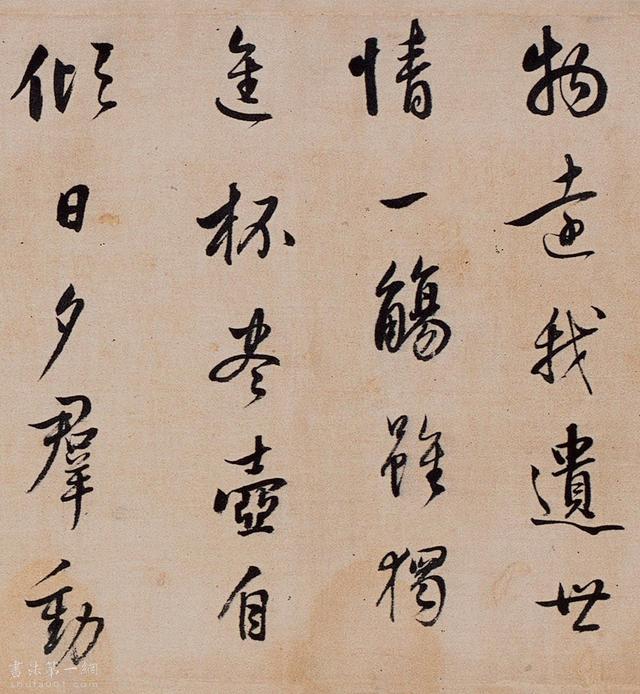 物遠我遺世
情一觴雖獨
進杯尽壺自
傾日夕羣動
書法第一網
shufa001.com